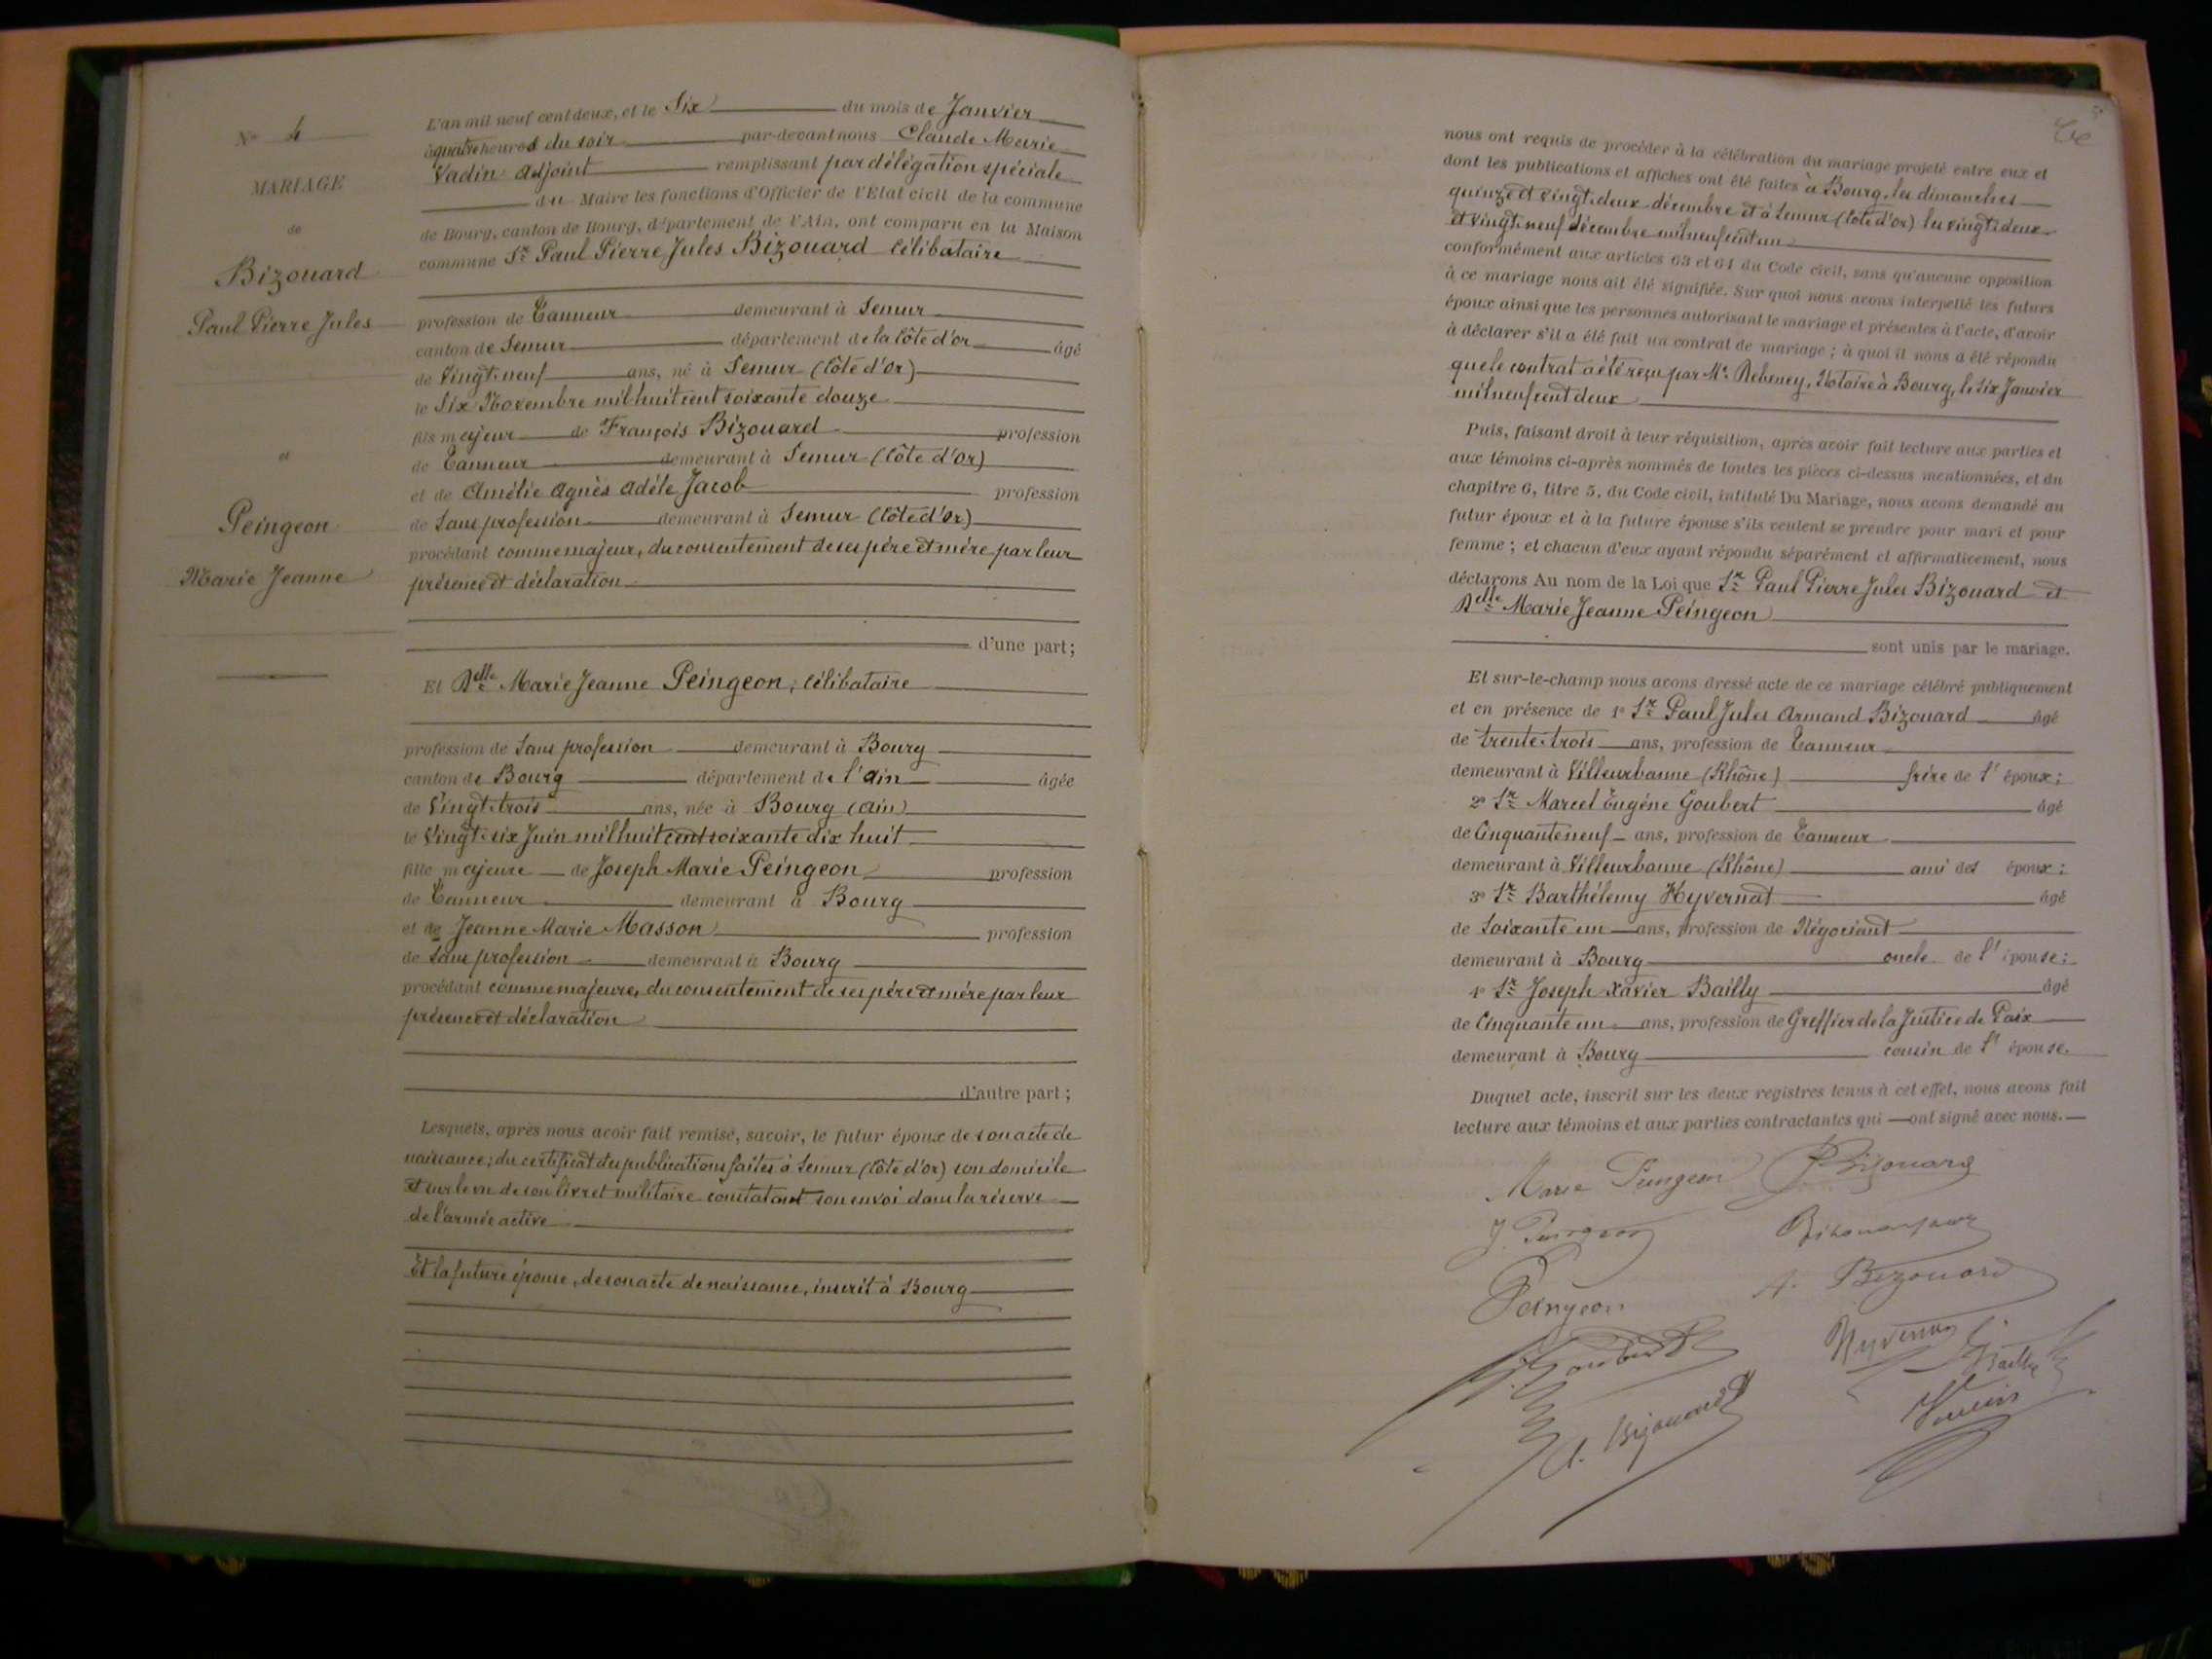 N° 4
MARIAGE
de
Bizouard
Paul Pierre Jules
et
Peingeon
Marie Jeanne
L'an mil neuf cent deux, et le Six du mois de Janvier
à quatre heures du soir par-devant nous Claude Marie
Vadin Adjoint remplissant par délégation spéciale
du Maire les fonctions d'Officier de l'Etat civil de la commune
de Bourg, canton de Bourg, département de l'Ain, ont comparu en la Maison
commune Sr Paul Pierre Jules Bizouard Célibataire
profession de Tanneur demeurant à Semur
canton de Semur département de la Côte d'or âgé
de Vingt-neuf ans, né à Semur (Côte d'Or)
le Six Novembre mil huit cent soixante douze
fils majeur de François Bizouard profession
de Tanneur demeurant à Semur (Côte d'Or)
et de Amélie Agnès Adèle Jacob profession
de Sans profession demeurant à Semur (Côte d'Or)
procédant comme majeur, du consentement de ses père et mère par leur
présence et déclaration
d'une part;
Et Delle Marie Jeanne Peingeon, Célibataire
profession de Sans profession demeurant à Bourg
canton de Bourg département de l'Ain âgée
de Vingt-trois ans, née à Bourg (Ain)
le Vingt-six Juin mil huit cent soixante dix huit
fille majeure de Joseph Marie Peingeon profession
de Tanneur demeurant à Bourg
et de Jeanne Marie Masson profession
de Sans profession demeurant à Bourg
procédant comme majeure, du consentement de ses père et mère par leur
présence et déclaration
d'autre part;
Lesquels, après nous avoir fait remise, savoir, le futur époux de son acte de
naissance; du certificat des publications faites à Semur (Côte d'or) son domicile
et sur le vu de son livret militaire constatant son envoi dans la réserve
de l'armée active
Et la future épouse, de son acte de naissance, inscrit à Bourg
5
nous ont requis de procéder à la célébration du mariage projeté entre eux et
dont les publications et affiches ont été faites à Bourg, les dimanches
quinze et vingt-deux décembre et à Semur (Côte d'or) les vingt-deux
et vingt-neuf décembre mil neuf cent un
conformément aux articles 63 et 64 du Code civil, sans qu'aucune opposition
à ce mariage nous ait été signifiée. Sur quoi nous avons interpellé les futurs
époux ainsi que les personnes autorisant le mariage et présentes à l'acte, d'avoir
à déclarer s'il a été fait un contrat de mariage; à quoi il nous a été répondu
que le contrat a été reçu par Me Debeney, Notaire à Bourg, le six Janvier
mil neuf cent deux
Puis, faisant droit à leur réquisition, après avoir fait lecture aux parties et
aux témoins ci-après nommés de toutes les pièces ci-dessus mentionnées, et du
chapitre 6, titre 5, du Code civil, intitulé Du Mariage, nous avons demandé au
futur époux et à la future épouse s'ils veulent se prendre pour mari et pour
femme; et chacun d'eux ayant répondu séparément et affirmativement, nous
déclarons Au nom de la Loi que Sr Paul Pierre Jules Bizouard et
Delle Marie Jeanne Peingeon
sont unis par le mariage.
Et sur-le-champ nous avons dressé acte de ce mariage célébré publiquement
et en présence de 1° Sr Paul Jules Armand Bizouard âgé
de trente-trois ans, profession de Tanneur
demeurant à Villeurbanne (Rhône) frère de l' époux;
2° Sr Marcel Eugène Goubert âgé
de Cinquante neuf ans, profession de Tanneur
demeurant à Villeurbanne (Rhône) ami des époux;
3° Sr Barthélemy Hyvernat âgé
de Soixante un ans, profession de Négociant
demeurant à Bourg oncle de l' épouse;
4° Sr Joseph Xavier Bailly âgé
de Cinquante un ans, profession de Greffier de la Justice de Paix
demeurant à Bourg cousin de l' épouse.
Duquel acte, inscrit sur les deux registres tenus à cet effet, nous avons fait
lecture aux témoins et aux parties contractantes qui ont signé avec nous.
Marie Peingeon Bizouard
J. Peingeon
Peingeon A. Bizouard
Goubert Hyvernat
Bailly
A. Bizouard Vadin